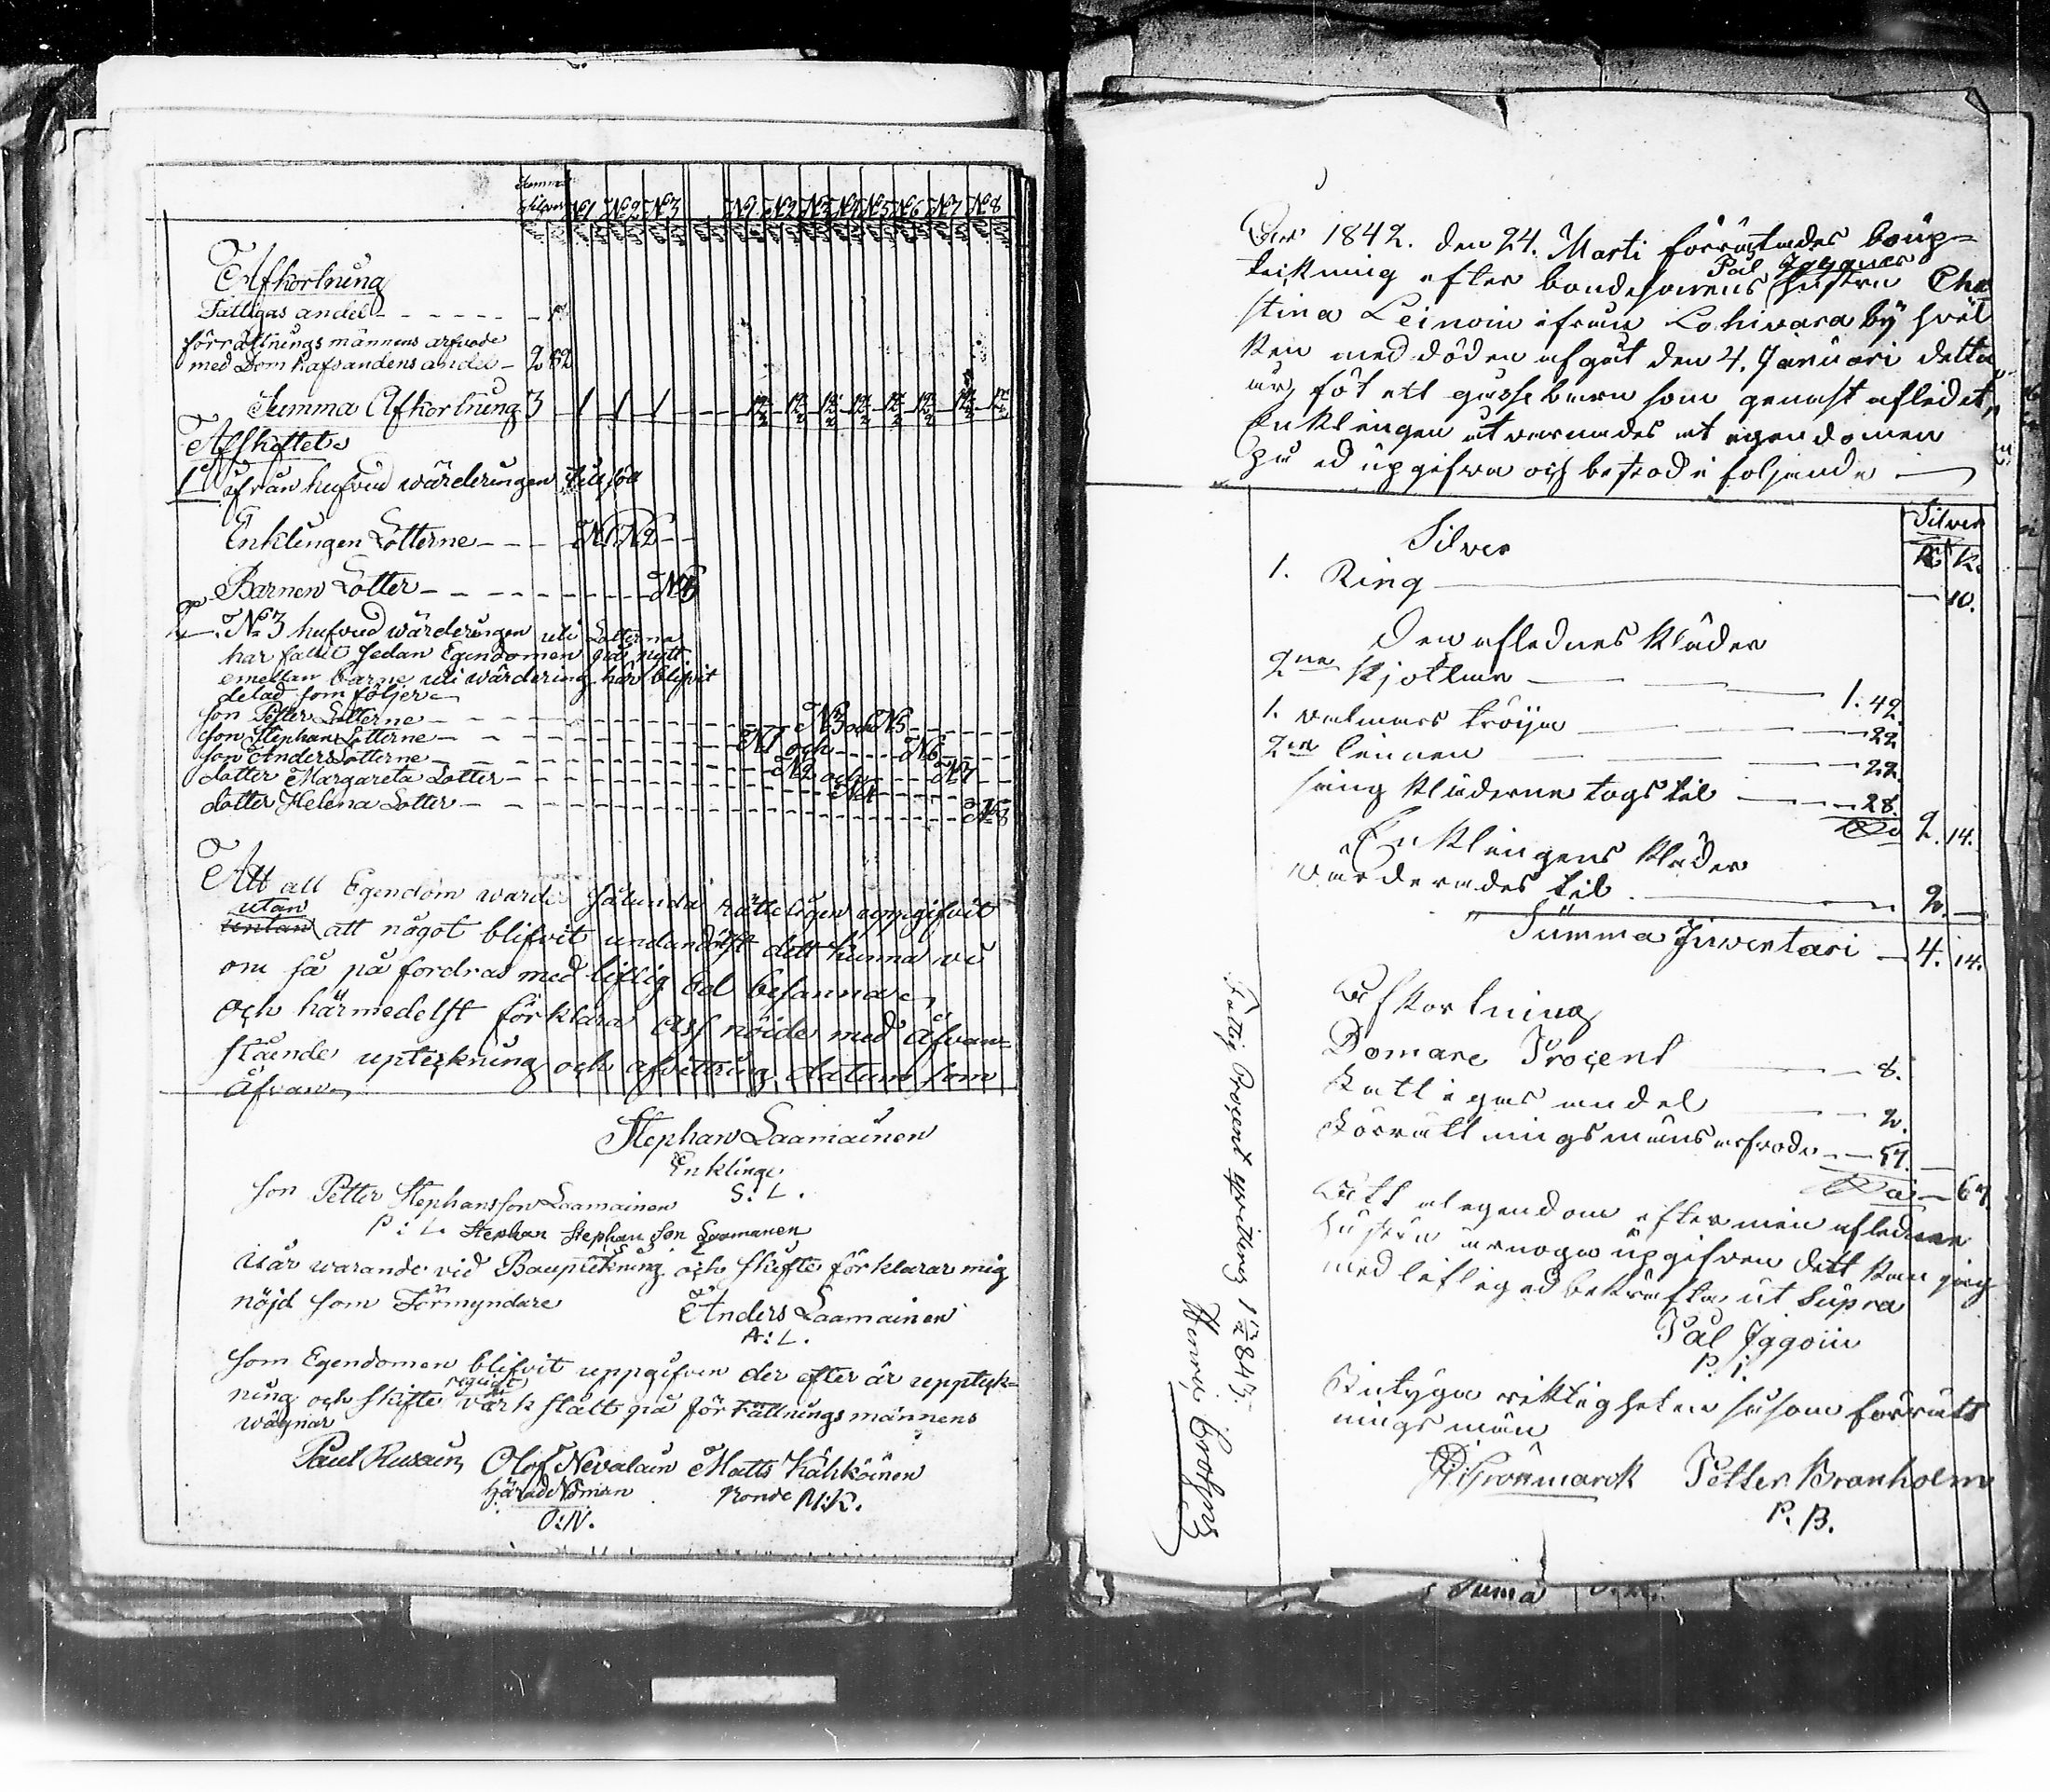 Summa
Silfver N1 N2 N3 N1 N2 N3 N4 N5 N6 N7 N8
Afkortning
Fattigas andel
förrättnings männens arfvode
med Dom hafvandens andel 2 82
Summa Afkortning 3 1 1 1
Afskiftet
1 ifrån hufvud wärderingen
Enklingen Lotterne N1 N2
Barnen Lotter N3
2 N3 hufvud wärderingen uti Lotterna
har fallit sedan Egendomen på nytt
emellan barne uti wärdering har blifvit
delad som följer
son Petter Lotterne N3 och N5
son Stephan Lotterne N1 och N6
son Anders Lotterne N2 och N7
dotter Margareta Lotter N4
dotter Helena Lotter N8
Att all Egendom warde sålunda rätteligen uppgifvit
utan
untan att något blifvit undandölgt dett kunna wi
om så på fordras med liflig Ed besanna
och härmedelst förklara oss nöide med åfvan=
stående upteckning och afvittring datum som
åfvan
Stephan Laamainen
Enkling
S: L.
son Petter Stephansson Laamainen
P: L. Stephan Stephan son Laamanen
När warande vid Bouptekning och skifte förklarar mig
nöjd som Förmyndare Anders Laamainen
A: L.
Som Egendomen blifvit uppgifven der efter är upptek=
ning och skifte värk stält på förrättnings männens
wägnar
Paul Rusain Olof Nevalain Matts Kähköinen
Härads Nöman Bonde M:K.
O:N.
År 1842. den 24. Marti förrättades boup=
Pål Jggoines
teikning efter bondesonens hustru Chr
stina Leinoin ifrån Lohiwara bÿ hvil
ken med döden afgåt den 4. Januari detta
år, föt ett gossebarn som genast afledit,
Enklingen åtvarnades at egendomen
på ed upgifva och bestod i foljande
Silver
Silver R. K.
1. Ring 10.
Den aflednes kläder
2ne kjotlar 1. 42
1. valmars tröija 22
2ne linnen 22.
säng kläderne togs til 28. 2. 14.
Enklingens kläder
värderades til 2.
Summa Inventari 4. 14.
Afkortning
Domare Procent 8.
Fattigas andel 2.
Förrättningsmäns arfvode 57.
67.
Att al egendom efter min aflednes
hustru är noga upgifven dett kan jag
med liflig ed bekräfta ut supra
Pål Jggoin
P. J.
Bitÿga riktigheten såsom förrätt
nings män
Gronmarck Petter Branholm
P. B.
Fattig Procent qvitteras
Henric Crohns
Suma